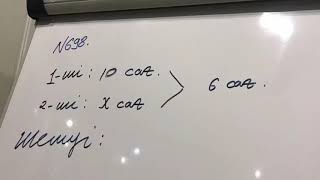 N698.
1-ші: 10 сағ.
6 сағ.
2-ші: x сағ
Шешуі: